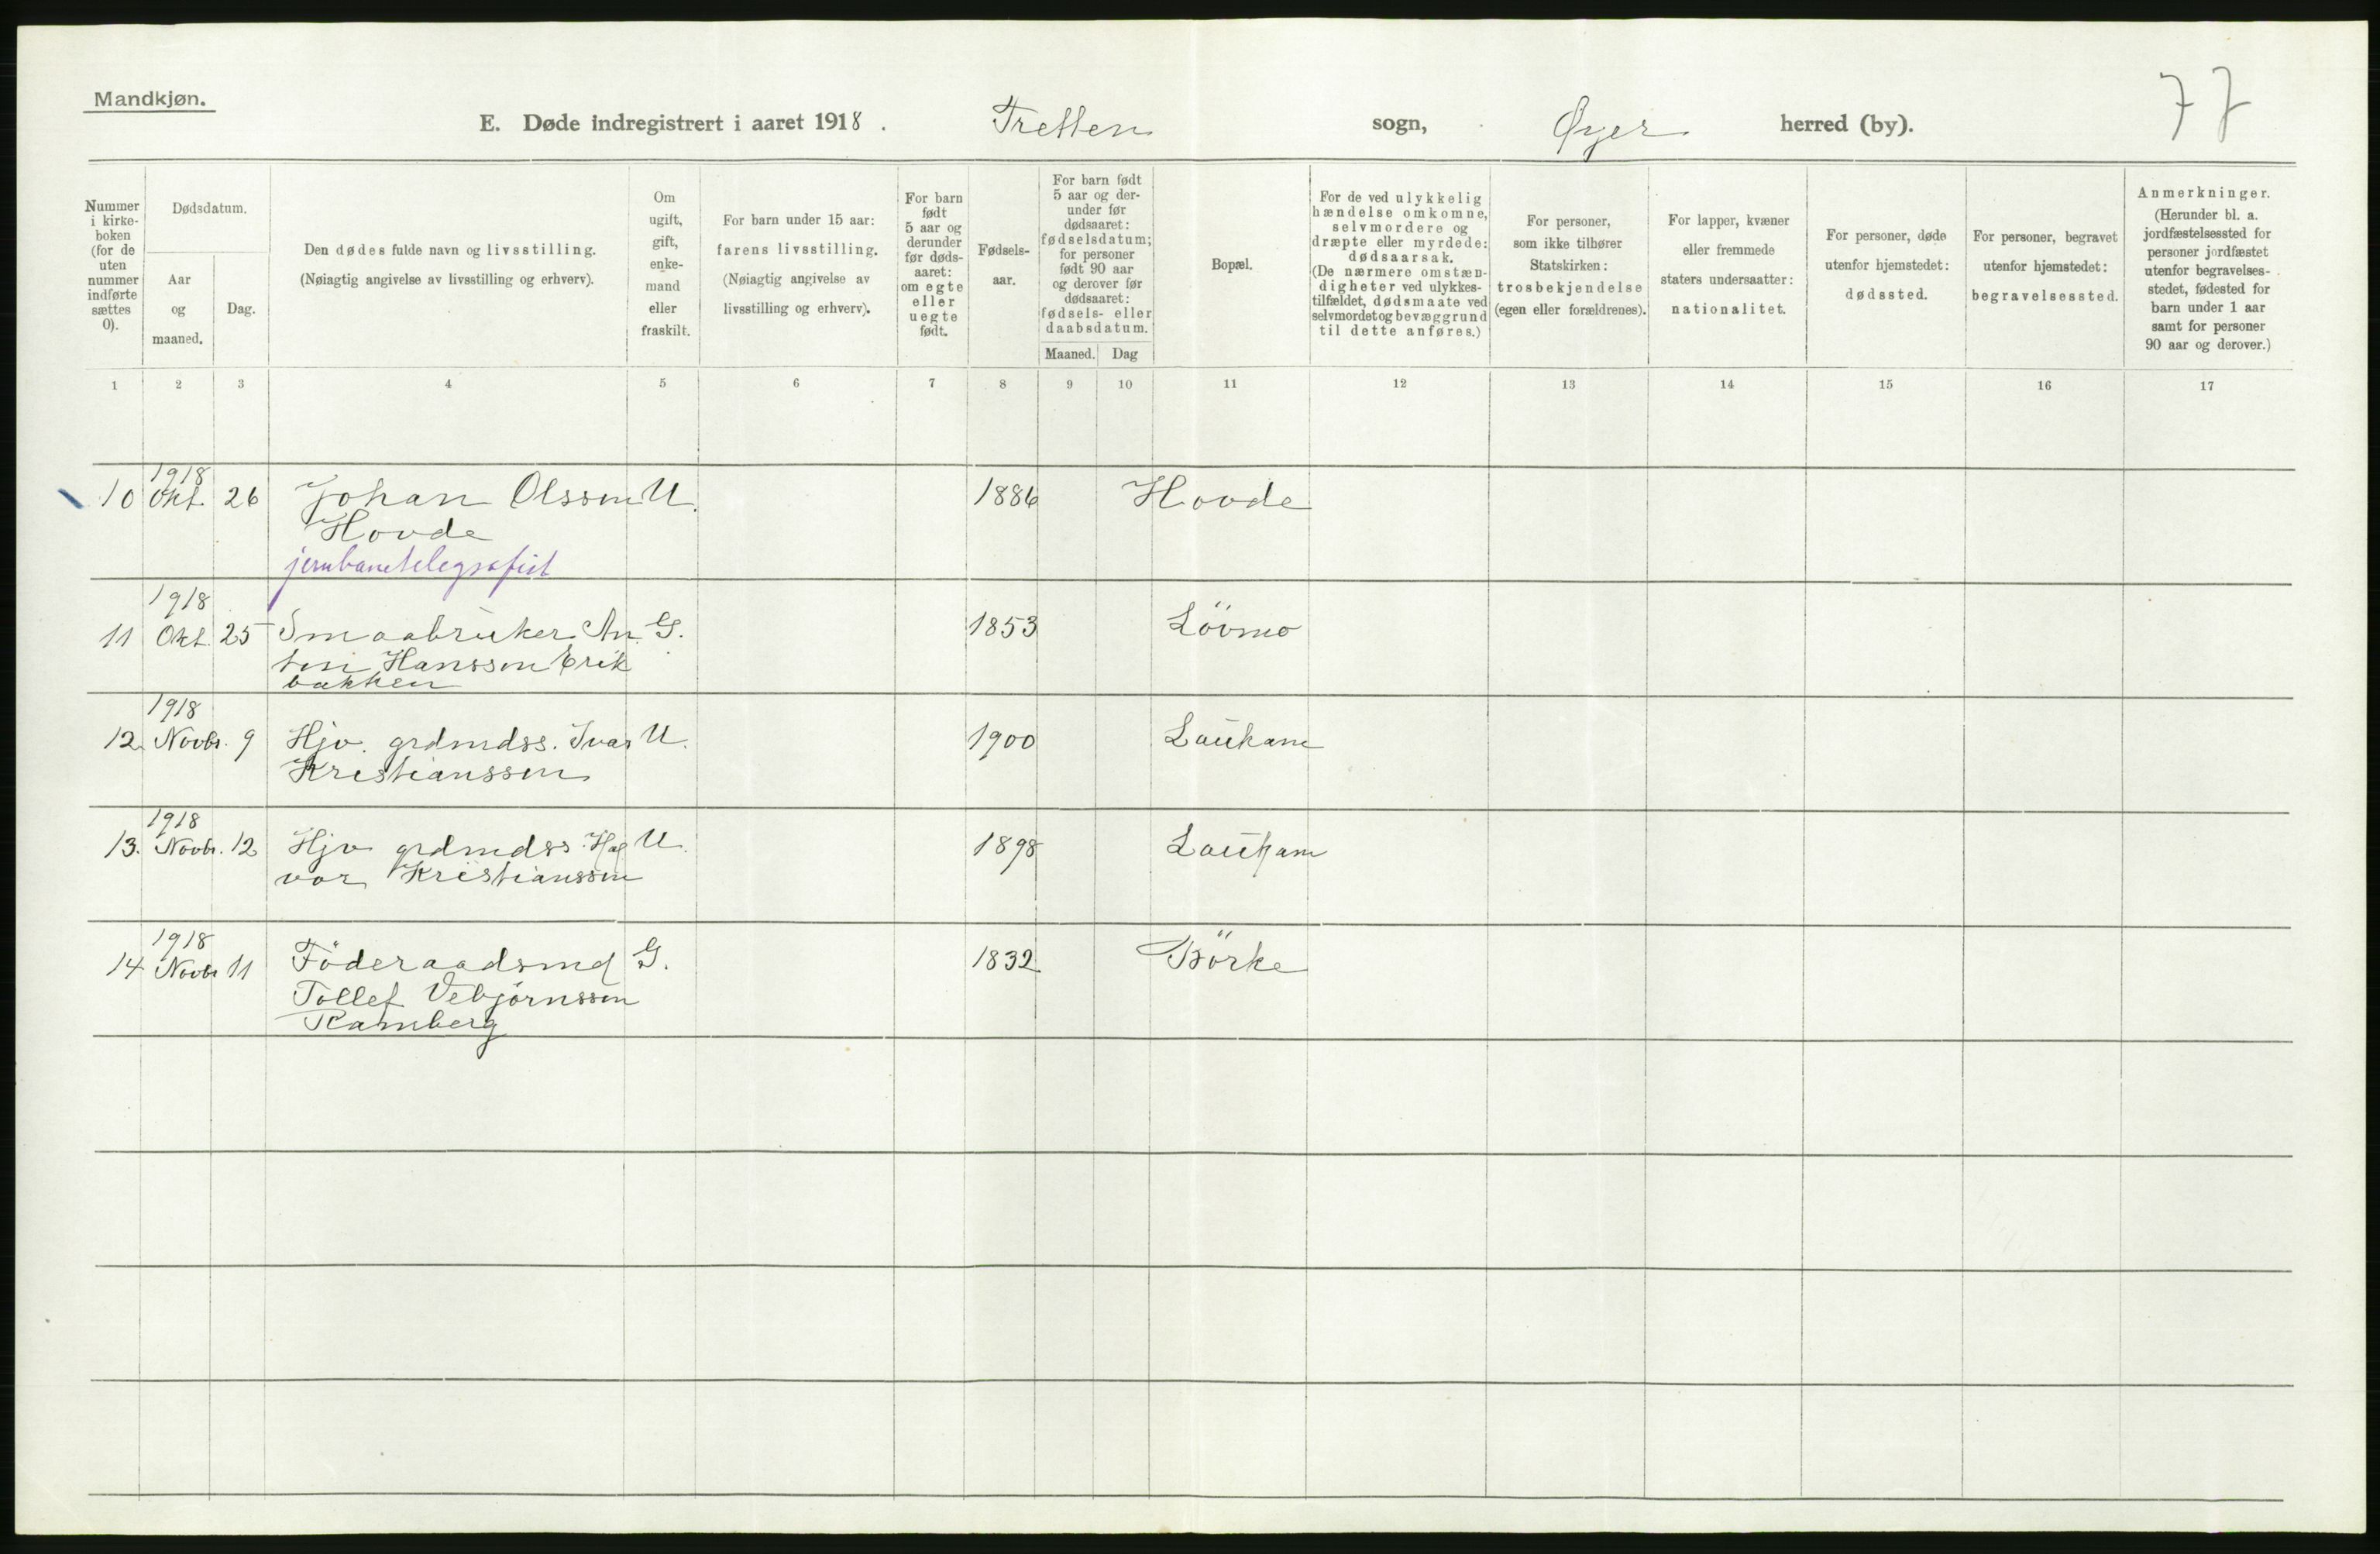 Mandkjøn.
77
E. Døde indregistrert i aaret 1918. Tretten sogn, Øyer herred (by).
Nummer i kirkeboken (for de uten nummer indførte sættes 0).
Dødsdatum.
Aar og maaned.
Dag.
Den dødes fulde navn og livsstilling. (Nøiagtig angivelse av livsstilling og erhverv).
Om ugift, gift, enkemand eller fraskilt.
For barn under 15 aar: farens livsstilling. (Nøiagtig angivelse av livsstilling og erhverv).
For barn født 5 aar og derunder før dødsaaret: om egte eller uegte født.
Fødselsaar.
For barn født 5 aar og derunder før dødsaaret: fødselsdatum; for personer født 90 aar og derover før dødsaaret: fødsels- eller daabsdatum.
Maaned. Dag
Bopæl.
For de ved ulykkelig hændelse omkomne, selvmordere og dræpte eller myrdede: dødsaarsak. (De nærmere omstændigheter ved ulykkestilfældet, dødsmaate ved selvmordet og bevæggrund til dette anføres.)
For personer, som ikke tilhører Statskirken: trosbekjendelse (egen eller forældrenes).
For lapper, kvæner eller fremmede staters undersaatter: nationalitet.
For personer, døde utenfor hjemstedet: dødssted.
For personer, begravet utenfor hjemstedet: begravelsessted.
Anmerkninger. (Herunder bl. a. jordfæstelsessted for personer jordfæstet utenfor begravelsesstedet, fødested for barn under 1 aar samt for personer 90 aar og derover.)
1 2 3 4 5 6 7 8 9 10 11 12 13 14 15 16 17
1918
10 Okt. 26 Johan Olssen U. 1886 Hovde
Hovde
jernbanetelegrafist
1918
11 Okt. 25 Smaabruker An G. 1853 Lövmo
ton Hanssen Erik
bakken
1918
12. Novbr. 9 Hjv. grdmdss. Ivar U. 1900 Laukam
Kristianssen
1918
13. Novbr. 12 Hjv grdmdss Hal U. 1898 Laukam
vor Kristianssen
1918
14 Novbr 11 Föderaadsmd G. 1832 Börke
Tollef Vebjörnssen
Ramberg